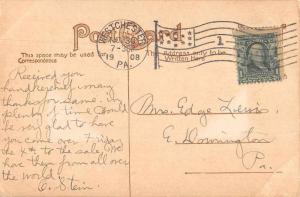 Post Card
WESTCHESTER
7-
1908
PA.
1
This space may be used for
Correspondence
address only to be
Written Here
Received you
handkerchief many
thanks you same.
plenty of time would
be very glad to have
you come over Friday
the 4th to the sale, We
have them from all over
the world.
C. Stein
Mrs. Edge Lewis
E. Downington
Pa.